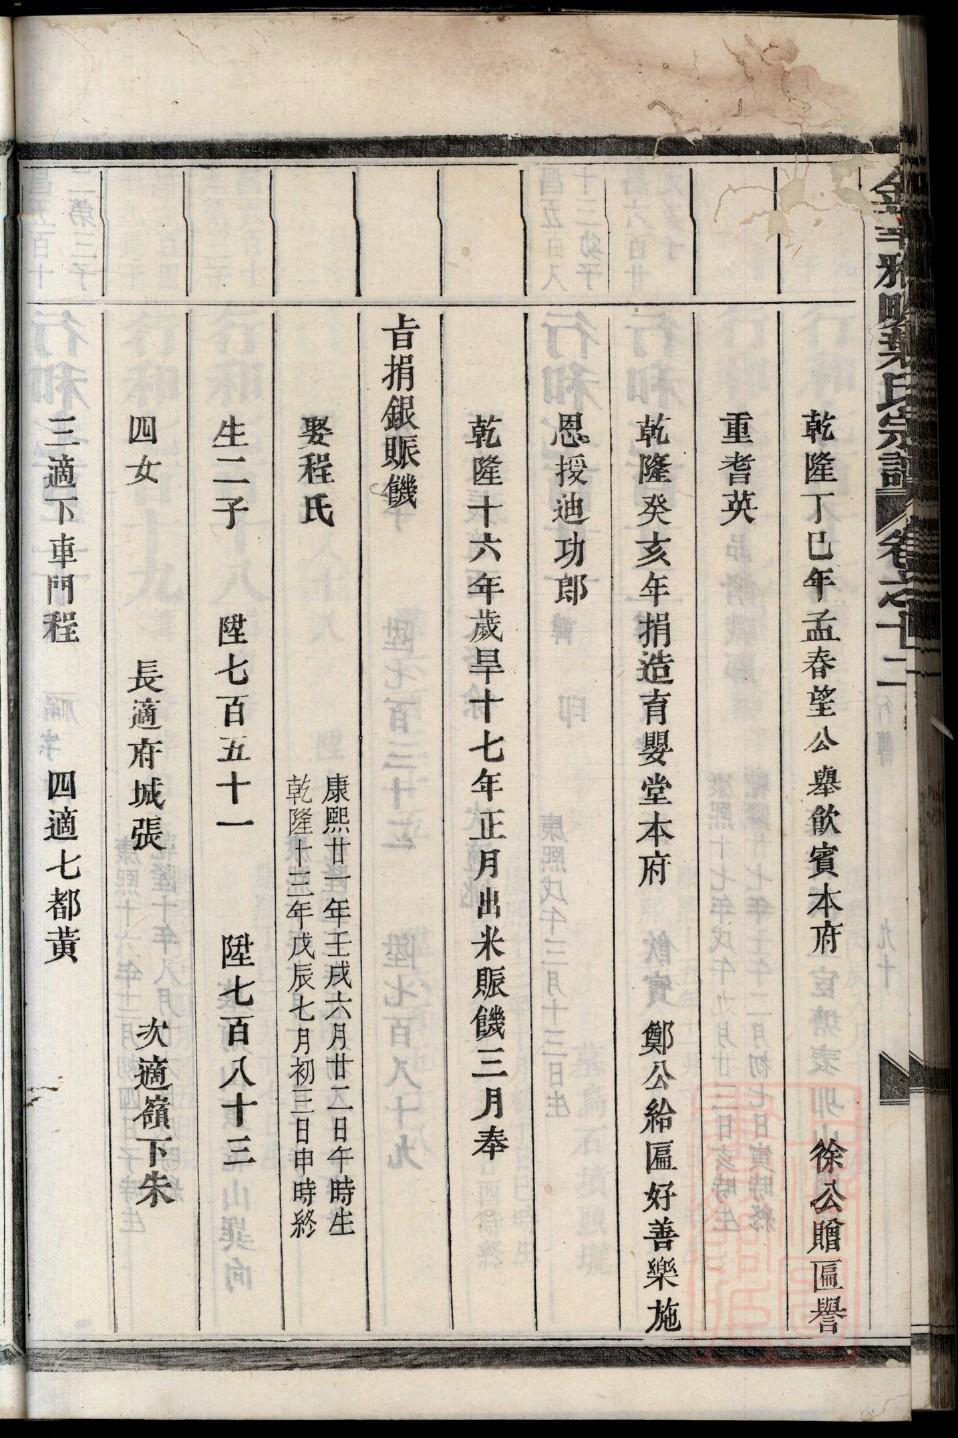 乾隆丁巳年孟春望公舉飲賓本府 徐公贈匾譽
重耆英
乾隆癸亥年捐造育嬰堂本府 鄭公給匾好善樂施
恩授迪功郎
乾隆十六年歲旱十七年正月出米賑饑三月奉
旨捐銀賑饑
娶程氏 康熙廿一年壬戌六月廿二日午時生
乾隆十三年戊辰七月初三日申時終
生二子 陞七百五十一 陞七百八十三
四女 長適府城張 次適嶺下朱
三適下車門程 四適七都黃